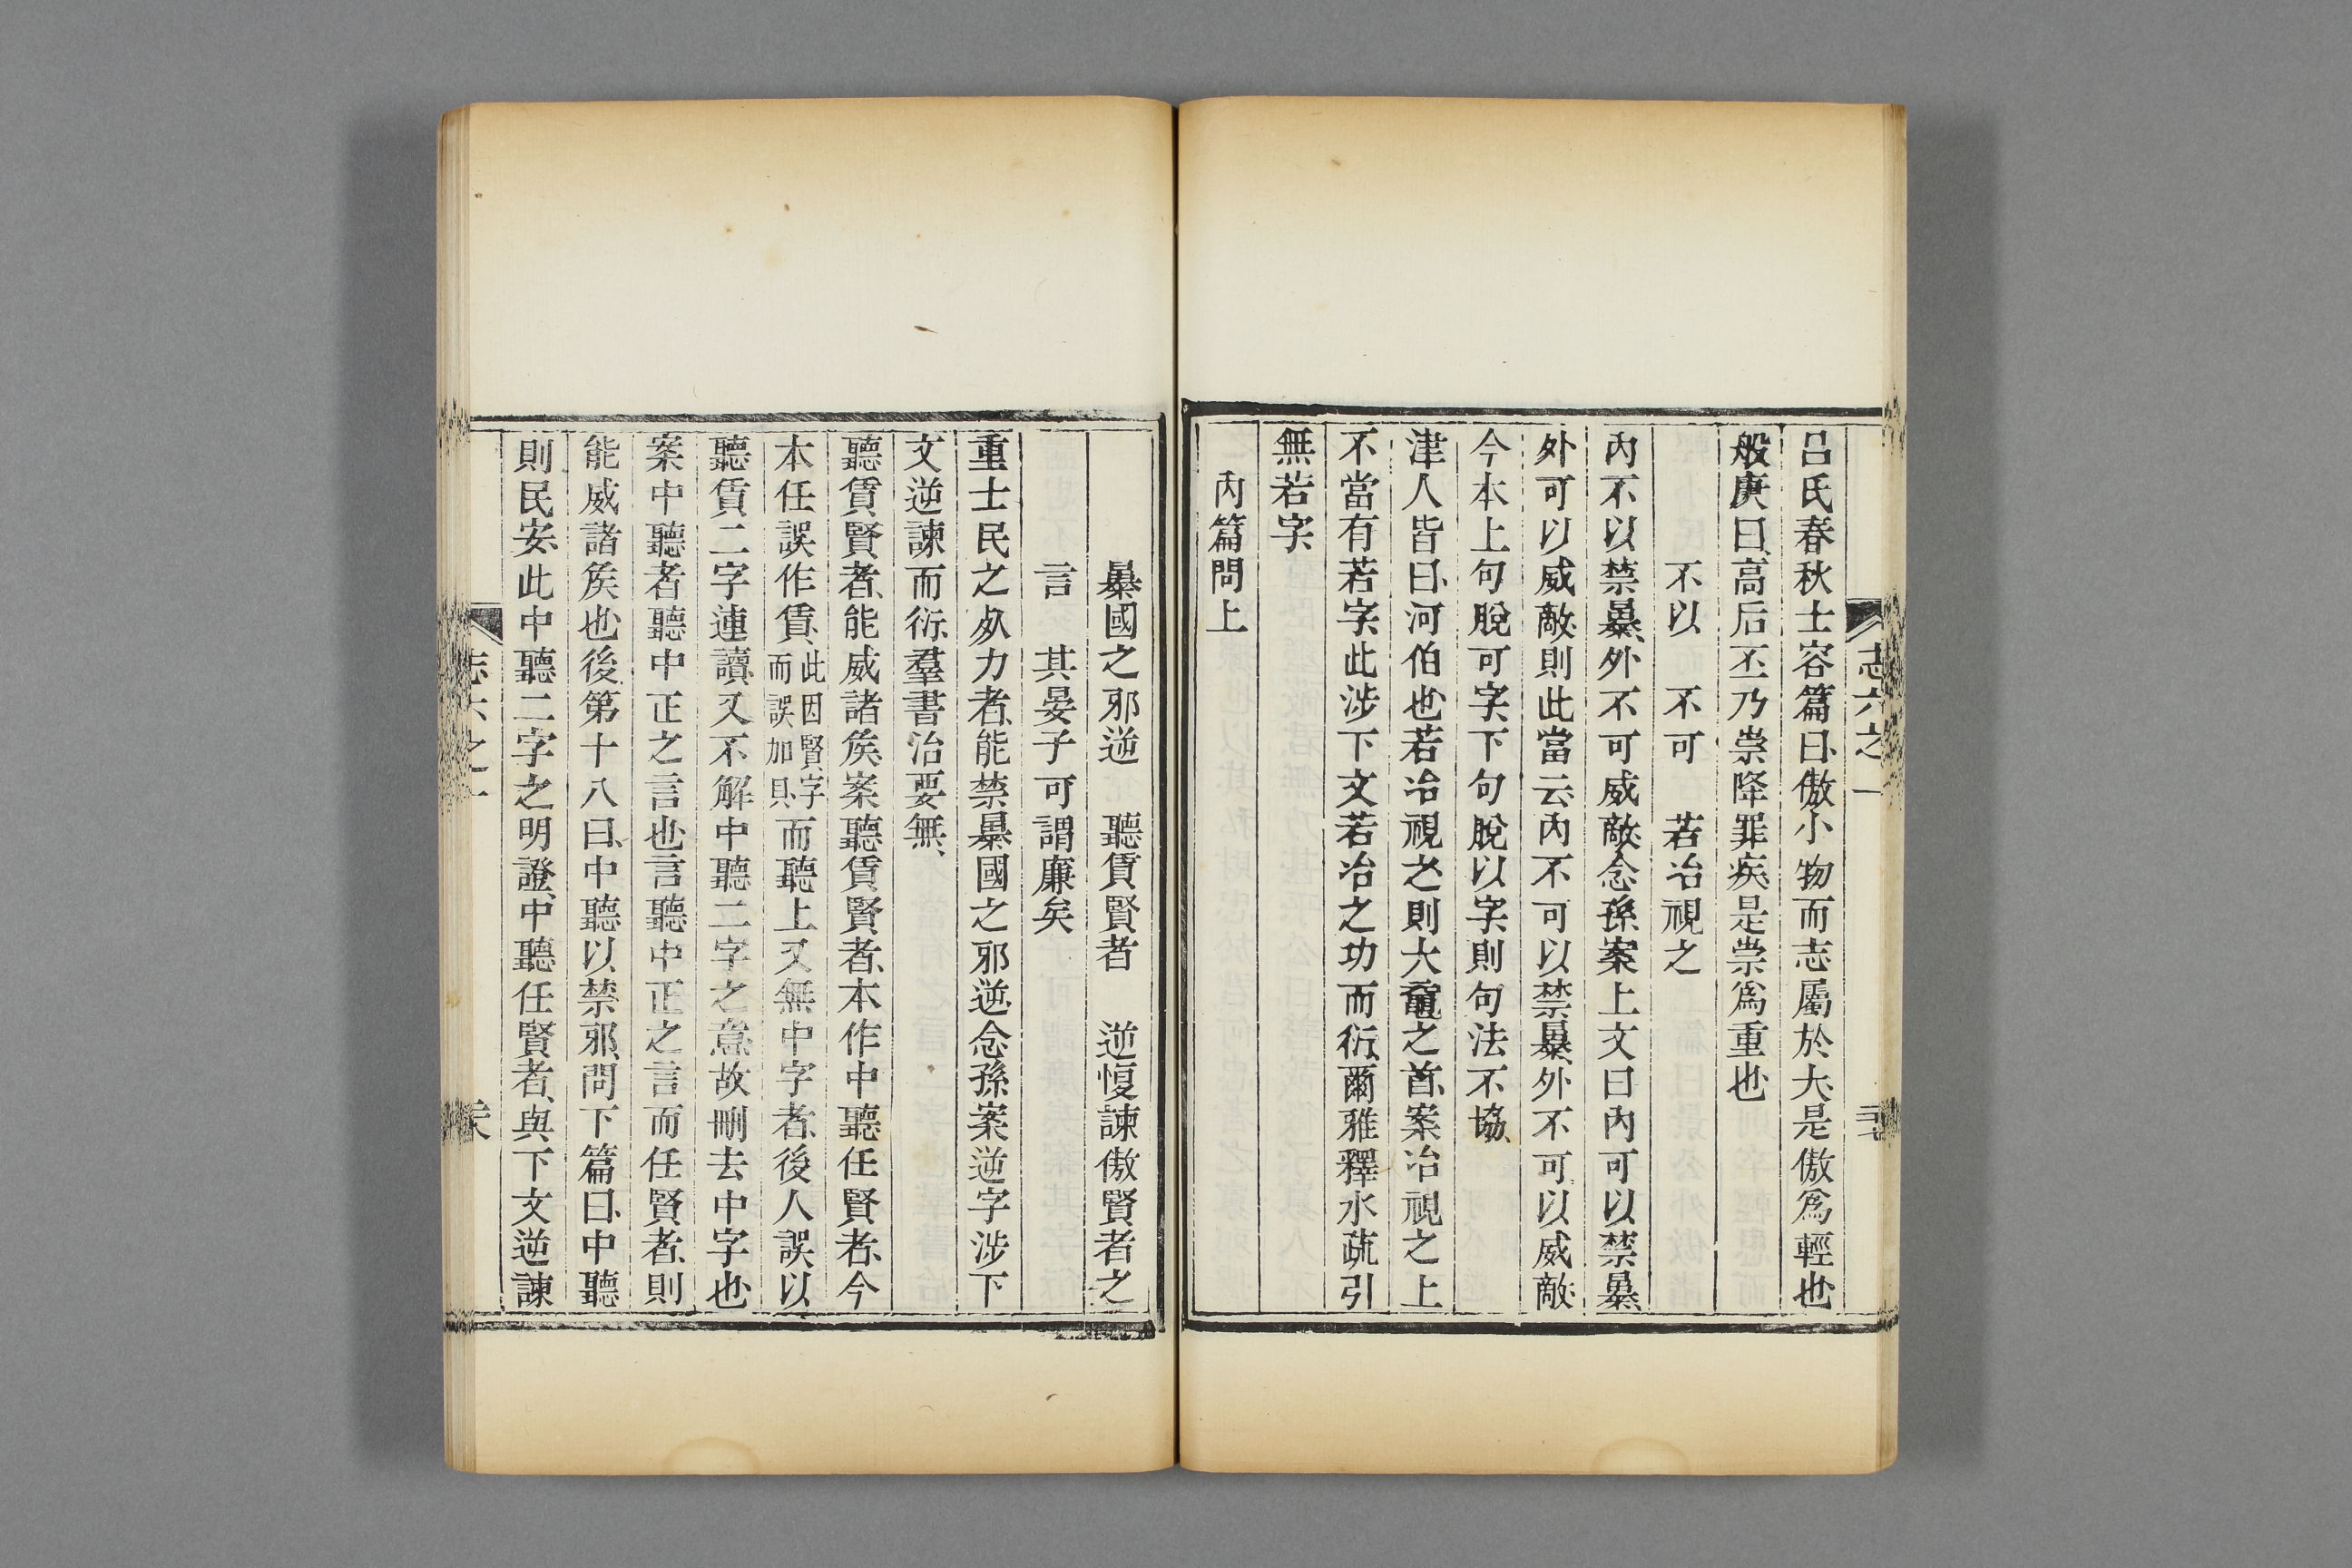 呂氏春秋士容篇曰傲小物而志屬於大是傲爲輕也
般庚曰高后丕乃崇降罪疾是崇爲重也
不以 不可 若冶視之
內不以禁暴外不可威敵念孫案上文曰內可以禁暴
外可以威敵則此當云內不可以禁暴外不可以威敵
今本上句脫可字下句脫以字則句法不協
津人皆曰河伯也若冶視之則大黿之首案冶視之上
不當有若字此涉下文若冶之功而衍爾雅釋水疏引
無若字
內篇問上
志六之一
暴國之邪逆 聽賃賢者 逆愎諫傲賢者之
言 其晏子可謂廉矣
重士民之死力者能禁暴國之邪逆念孫案逆字涉下
文逆諫而衍羣書治要無
聽賃賢者能威諸矦案聽賃賢者本作中聽任賢者今
本任誤作賃此因賢字而誤加貝而聽上又無中字者後人誤以
聽賃二字連讀又不解中聽二字之意故刪去中字也
案中聽者聽中正之言也言聽中正之言而任賢者則
能威諸矦也後第十八曰中聽以禁邪問下篇曰中聽
則民安此中聽二字之明證中聽任賢者與下文逆諫
志六之一